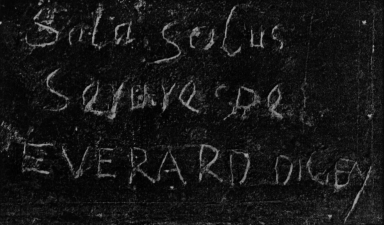 Sola salus
Servire De
EVERARD DIGBY